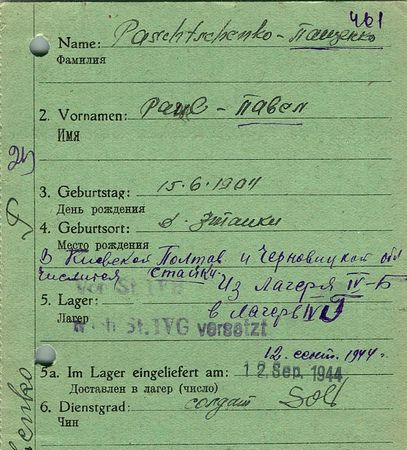 461
Name: Paschtschenko - Пащенко
Фамилия
2. Vornamen: Paul - Павел
Имя
3. Geburtstag: 15.6.1907
День рождения
4. Geburtsort: д. Зтанки
Место рождения
В Киевской Полтав и Черновицкой обл
числится Станки
von St. IVB
Из лагеря IV-Б
5. Lager: в лагерь IV
Лагерь
nach St. IVG versetzt
12. сент. 1944 г.
5a. Im Lager eingeliefert am: 12. Sep. 1944
Доставлен в лагерь (число)
6. Dienstgrad: солдат Sold
Чин